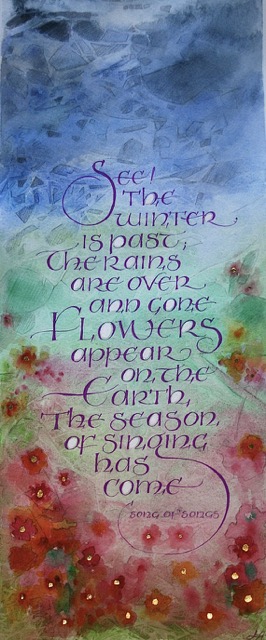 See!
The
winter
is past;
The rains
are over
and gone
Flowers
appear
on the
Earth,
The season
of singing
has
come
SONG OF SONGS